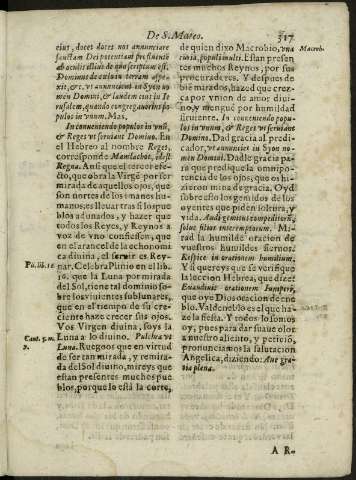 De S. Mateo. 317
eius, docet doces nos annunciare
sanctam Dei potentiam
Dominus de
, &c. vt annuncient in Syon no
men Domini, & laudem eius in Ie
rusalem, quando
populos in vnum. Mas.
In conueniendo populos in vnũ,
& Reges vt seruiant Domino. En
el Hebreo al nombre Reges,
corresponde Mamlachot, idest
Regna. Ansi que el tercer efe-
sto, que obra la Virgẽ por ser
mirada de aquellos ojos, que
son nortes de los imanes hu-
manos, es lleuar tras si los que
blos adunados, y hazer que
todos los Reyes, y Reynos a
voz de vno confiessen, que
en el arancel de la echonomi
ca diuina, el seruir es Rey-
Pli. lib. 12 nar. Celebra Plinio en el li-
bro. que la Luna por mirada
del Sol, tiene tal dominio so-
bre los viuientes sublunares,
que en el tiempo de su cre-
ciente haze crecer sus ojos.
Vos Virgen diuina, soys la
Cant. 5. m. Luna a lo diuino. Pulchra vt
9. Luna. Ruegoos que en virtud
de ser tan mirada, y remira-
da del Sol diuino, mireys que
estan presentes muchos pue
blos, porque està la corte,
de quien dixo Macrobio, vna Macrob.
curia, populi multi. Estan presen
tes muchos Reynos, por sus
procuradores. Y despues de
biẽ mirados, hazed que crez-
ca por vnion de amor diui-
no, y mengue por humildad
siruiente. In conueniendo popu-
los in vnum, & Reges vt seruiant
Domino. Dad gracia al predi-
cador, vt annunciet in Syon no-
men Domini. Dadle gracia pa-
ra que predique la omnipo-
tencia de los ojos, que os hi-
zieron mina de gracia. Oyd
sobre esso los gemidos de los
oyentes que piden soltura, y
vida. Audi gemitus compeditorũ,
solue filios interemptorum. Mi-
rad la humilde oracion de
vuestros humildes sieruos.
Respice in orationem humilium.
Y si quereys que se verifique
la leccion Hebrea, que dize:
Euanduit orationem Iuniperi,
que oye Dios oracion de ene
blo. Valdeneblo es el que ha-
ze la fiesta. Y todos lo somos
oy; pues para dar suaue olor
a nuestro aliento, y peticiõ,
pronunciamos la salutacion
Angelica, diziendo: Aue gra-
tia plena.
A R-